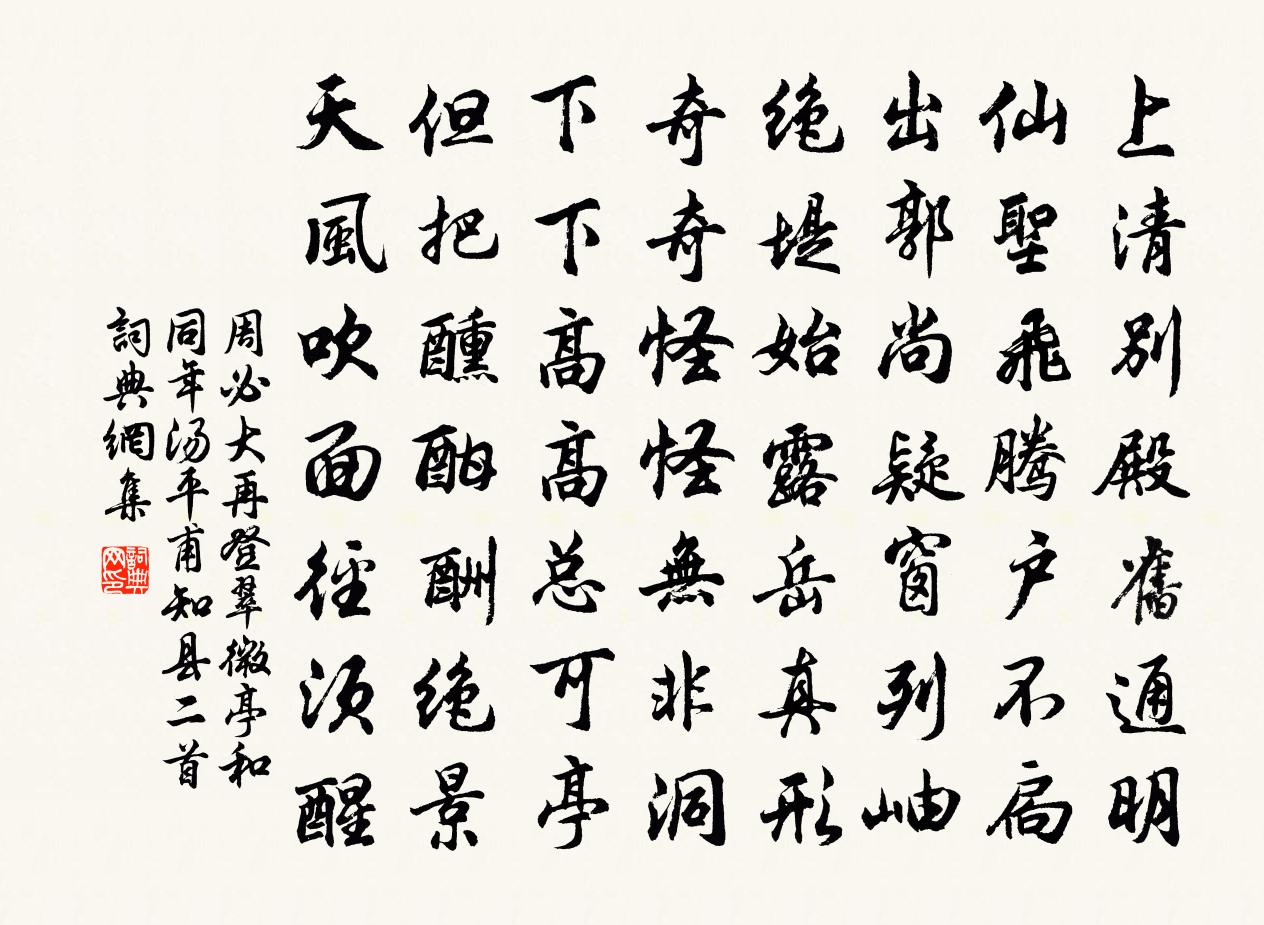 上清別殿舊通明
仙聖飛騰户不扃
出郭尚疑窗列岫
絶堤始露岳真形
奇奇怪怪無非洞
下下高高总可亭
但把醺酣酬絶景
天風吹面徑須醒
周必大再登翠微亭和
同年汤平甫知县二首
詞典網集
詞典网印